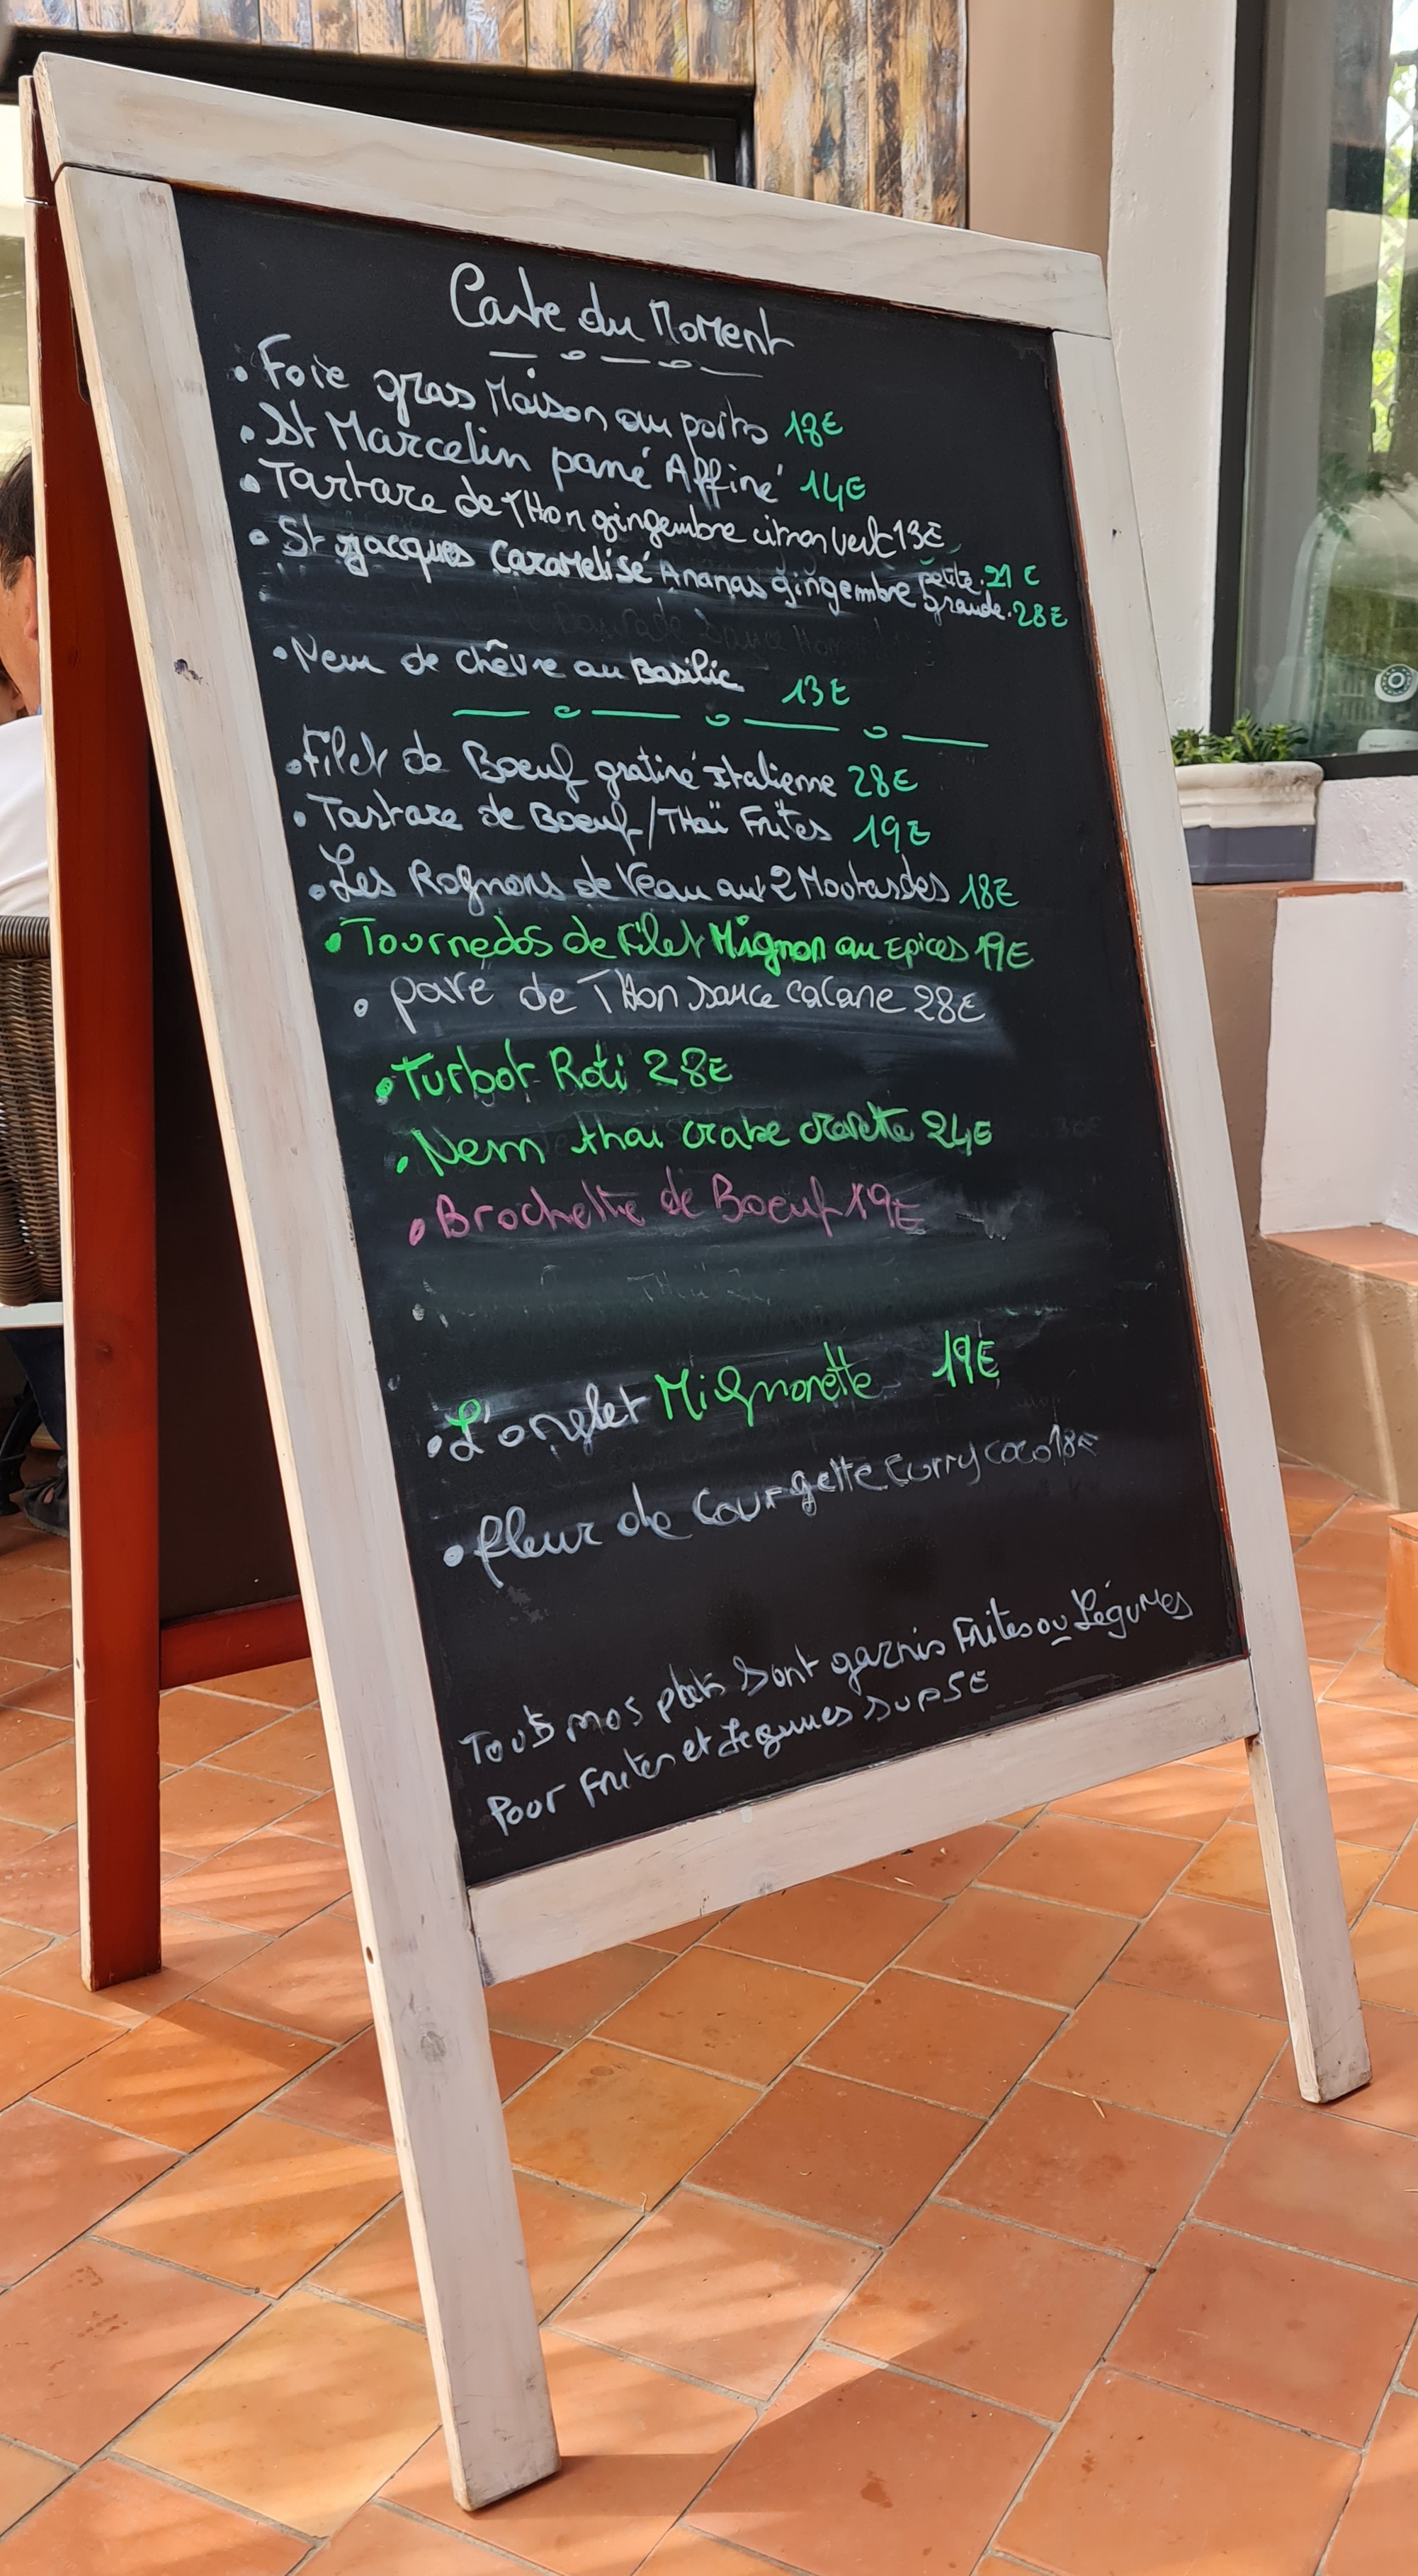 Carte du Moment
• Foie gras Maison au porto 18€
• St Marcelin pané Affiné 14€
• Tartare de THon gingembre citron vert 13€
• St Jacques Caramelisé Ananas gingembre petite. 21 €
grande. 28€
• Nem de chêvre au Basilic 13€
• Filet de Boeuf gratiné Italienne 28€
• Tartare de Boeuf/THaï Frites 19€
• Les Rognons de Veau aux 2 Moutardes 18€
• Tournedos de Filet Mignon au Epices 19€
• pavé de THon Sauce 28€
• Turbot Roti 28€
• Nem thai crabe crevette 24€
• Brochette de Boeuf 19€
• L'onglet Mignonette 19€
• fleur de Courgette Curry coco 18€
Tous mos plats Sont garnis Frites ou Légumes
Pour Frites et Legumes SUP 5€